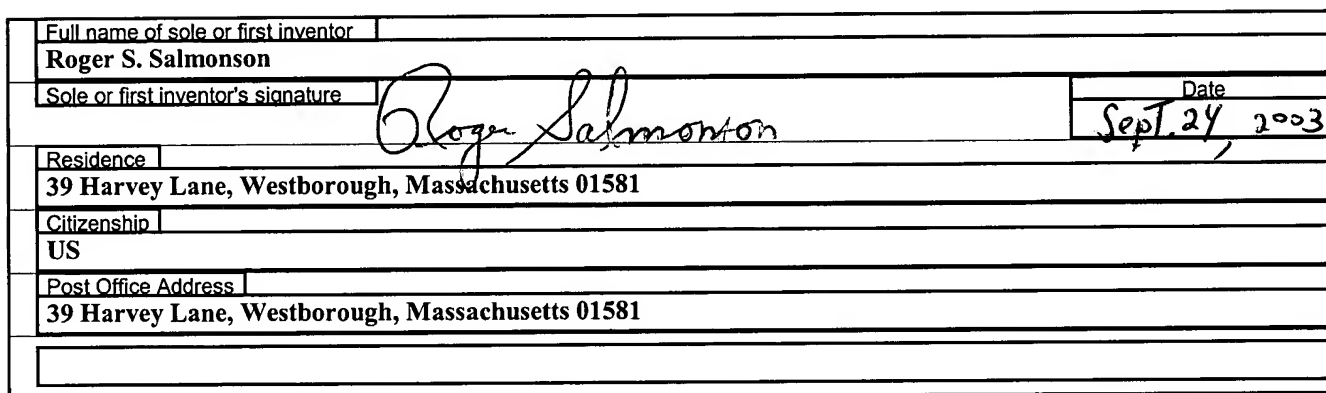 Full name of sole or first inventor
Roger S. Salmonson
Sole or first inventor's signature
Roger Salmonson
Date
Sept. 24, 2003
Residence
39 Harvey Lane, Westborough, Massachusetts 01581
Citizenship
US
Post Office Address
39 Harvey Lane, Westborough, Massachusetts 01581